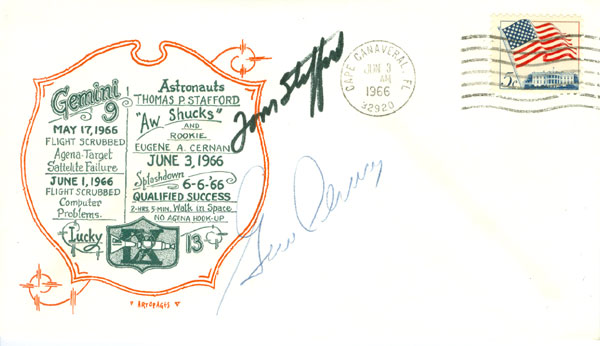 Gemini 9
MAY 17, 1966
FLIGHT SCRUBBED
Agena-Target
Sattelite Failure
JUNE 1, 1966
FLIGHT SCRUBBED
Computer
Problems.
Astronauts
THOMAS P. STAFFORD
"Aw Shucks"
AND
ROOKIE
EUGENE A. CERNAN
JUNE 3, 1966
Splashdown 6-6-'66
QUALIFIED SUCCESS
2-HRS 5 MIN. Walk in Space
NO AGENA HOOK-UP
Lucky IX 13
ARTOPAGES
Tom Stafford
Gene Cernan
CAPE CANAVERAL, FL
JUN 3
AM
1966
32920
5c